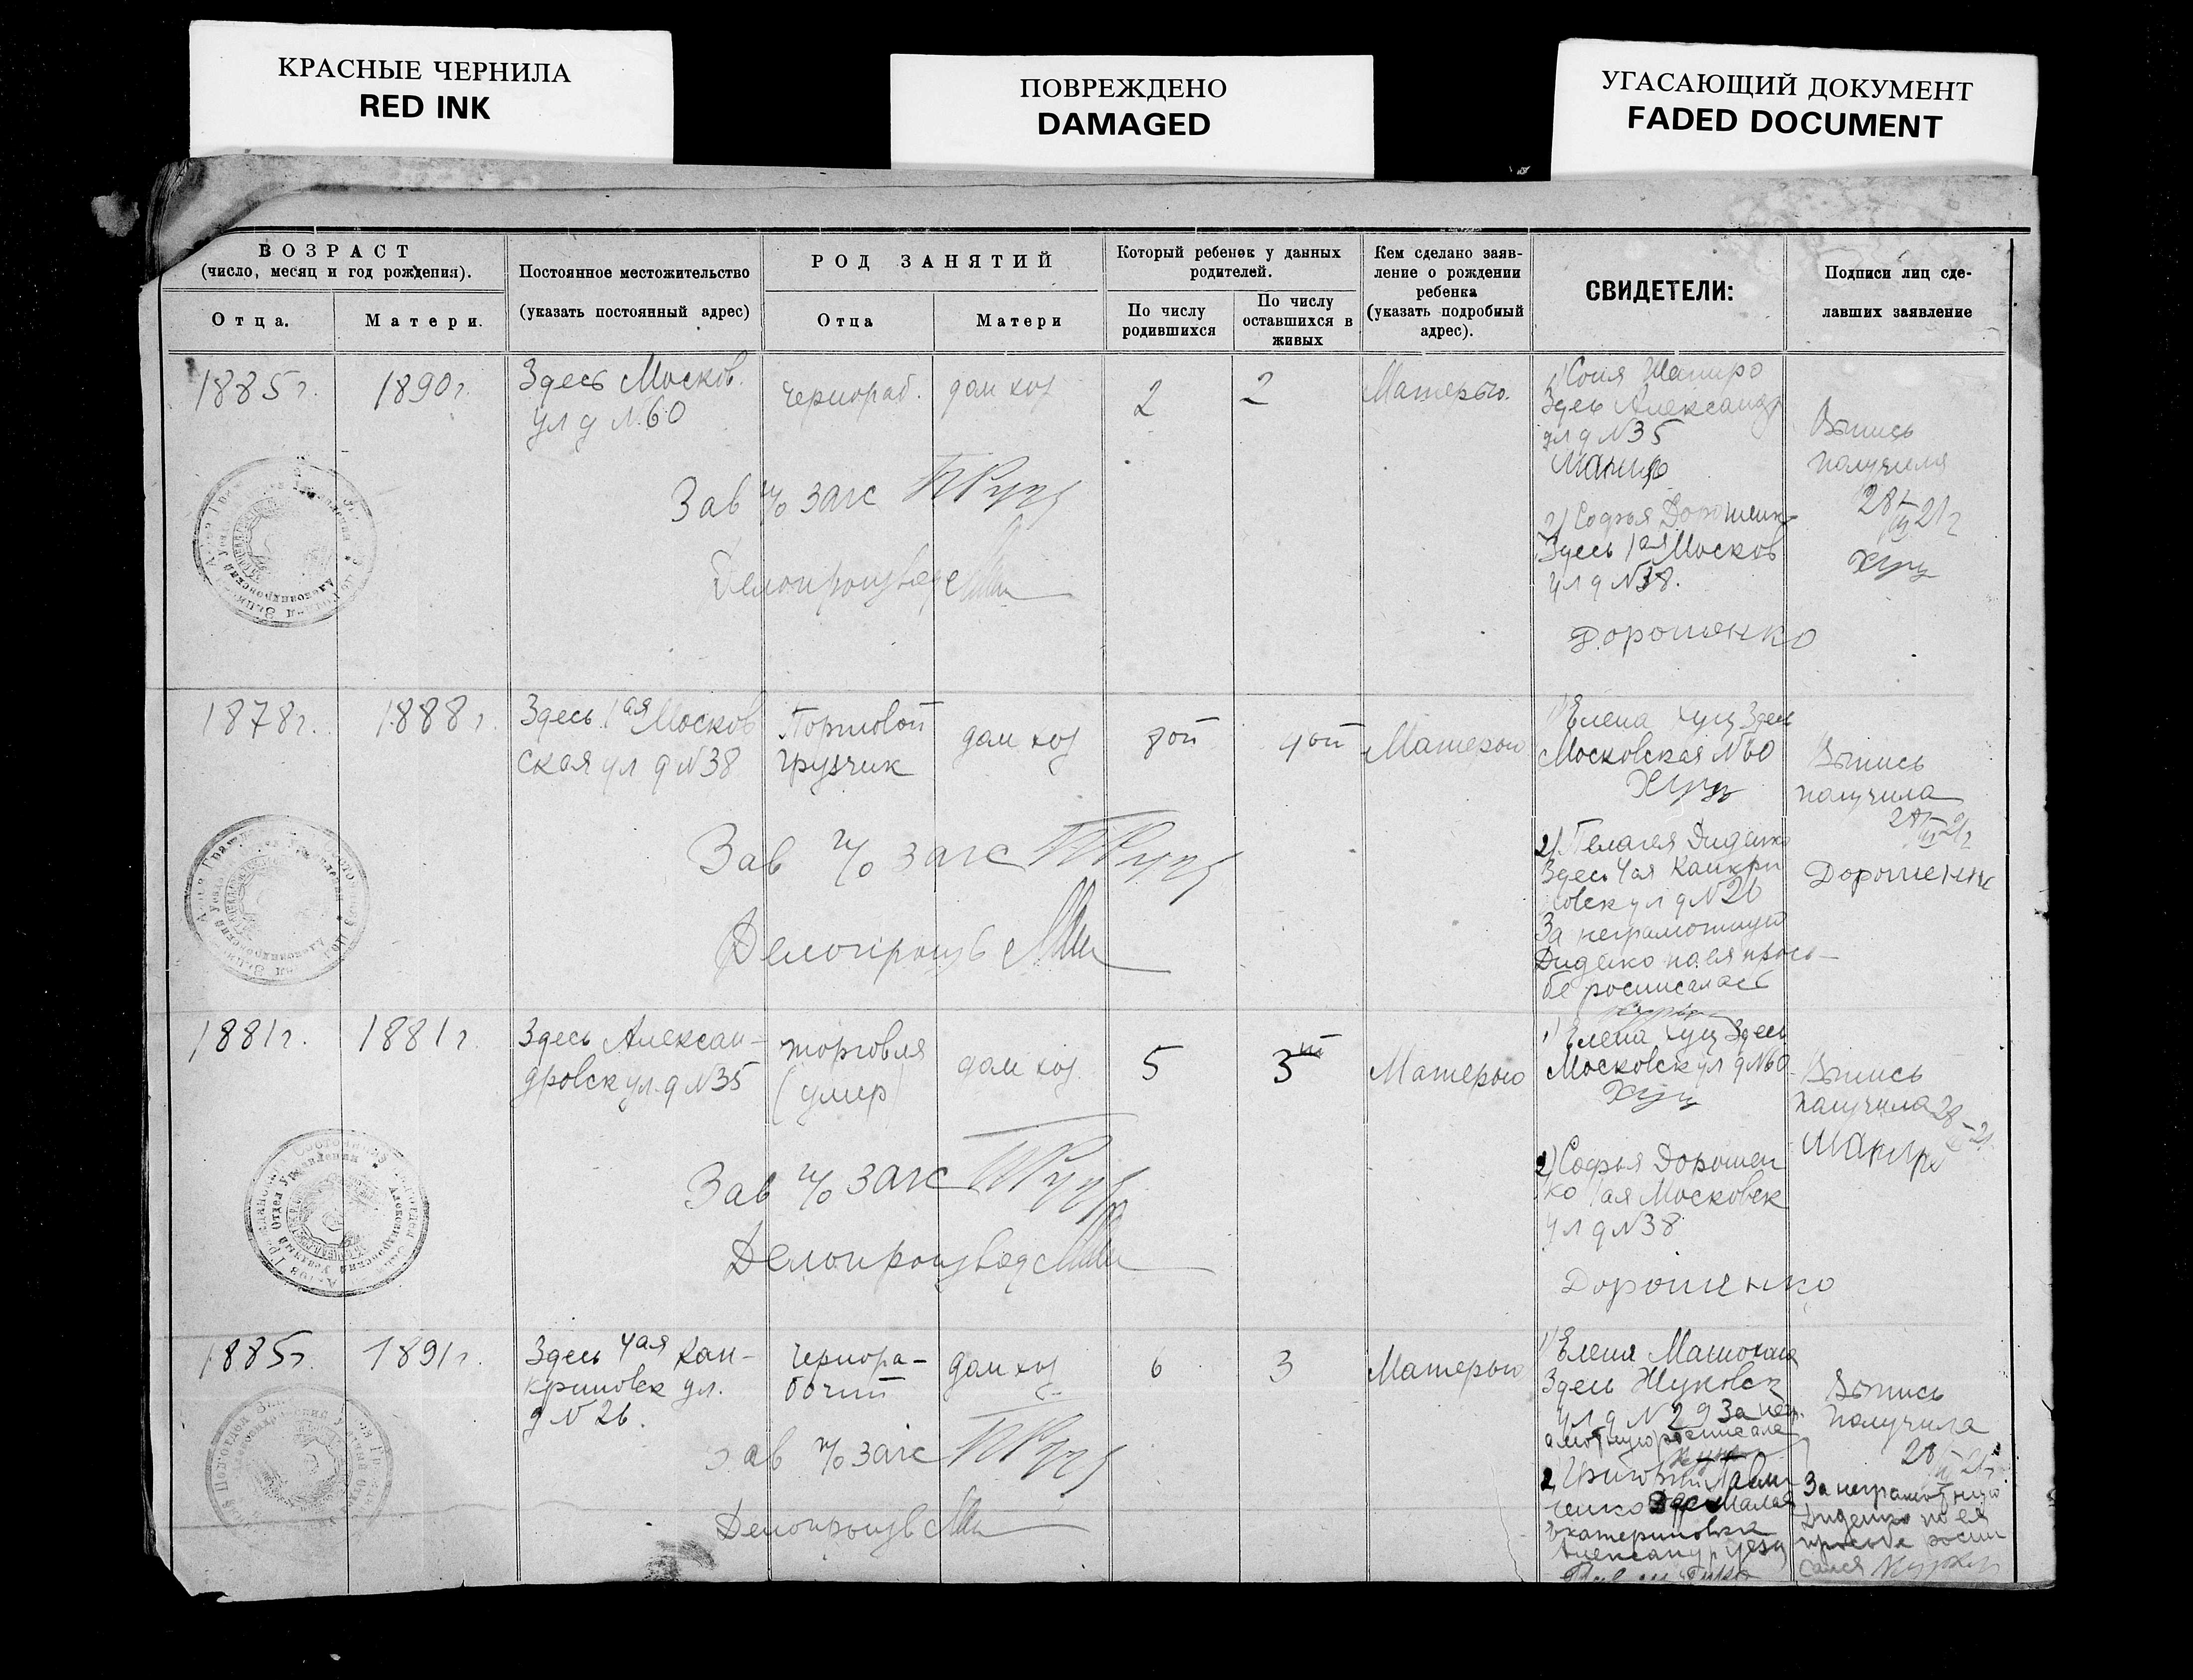 КРАСНЫЕ ЧЕРНИЛА
RED INK
ПОВРЕЖДЕНО
DAMAGED
УГАСАЮЩИЙ ДОКУМЕНТ
FADED DOCUMENT
ВОЗРАСТ
(число, месяц и год рождения).
Отца.
Матери.
Постоянное местожительство
(указать постоянный адрес)
РОД ЗАНЯТИЙ
Отца
Матери
Который ребенек у данных
родителей.
По числу
родившихся
По числу
оставшихся в
живых
Кем сделано заяв-
ление о рождении
ребенка
(указать подробный
адрес).
СВИДЕТЕЛИ:
Подписи лиц сде-
лавших заявление
1885 г.
1890 г.
Здесь Москов.
ул д N 60
чернораб.
дом хоз
2
2
Матерью.
1) Соня Шапиро
Здесь Александр
ул д N 35
2) Софья Дорошенк
Здесь 1ая Москов
ул д N 38.
Дорошенко
Выпись
получила
28 21 г
Хуц
Зав п/о загс
Делопроизвед
1878 г.
1888 г.
Здесь 1ая Москов
ская ул д N 38
Портовой
грузчик
дом хоз
8ой
4ой
Матерью
1) Елена Хуц Здесь
Московская N 60
Хуц
2) Пелагея Диденко
Здесь 4ая Канкри
новск ул д N 26
За неграмотную
Диденко по ея прось-
бе росписалась
Выпись
получила
28 21 г
Дорошенк
Зав п/о загс
Делопроизв
1881 г.
1881 г.
Здесь Алексан-
дровск ул. д N 35
торговля
(умер)
дом хоз
5
3ий
Матерью
1) Елена Хуц Здесь
Московск ул д N 60
Хуц
2) Софья Дорошен
ко 1ая Московск
ул д N 38
Дорошенко
Выпись
получила 28 21
Шапиро
Зав п/о загс
Делопроизвод
1885 г.
1891 г.
Здесь 4ая Кан-
криновск ул.
д N 26.
Чернора-
бочий
дом хоз
6
3
Матерью
1) Елена
Здесь Жуковск
ул д N 29 За негр
амотную росписала
2) Григорий
ченко Здесь Малая
Екатериновка
Александр уезд
Выпись
получила
28 21 г
За неграмотную
Диденко по ея
просьбе роспи
сался
Зав п/о загс
Делопроизв